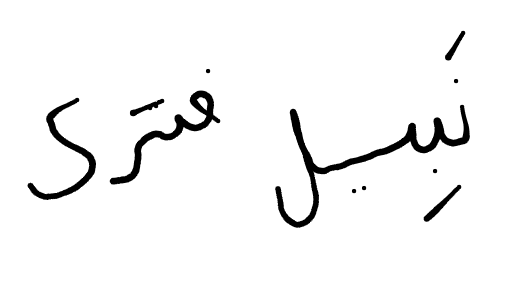 نَبِيل فترى